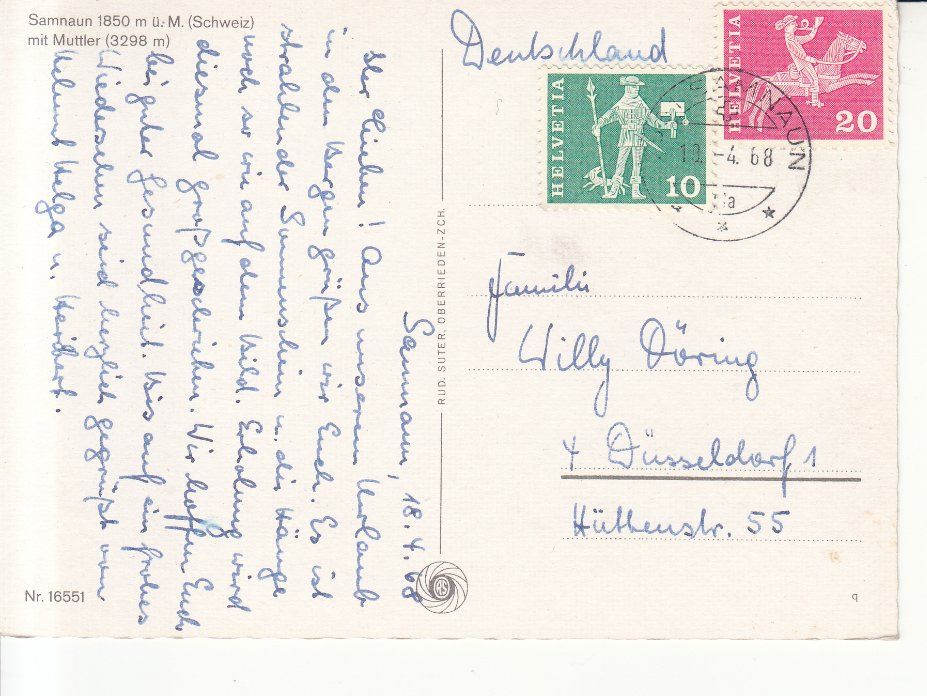 Samnaun 1850 m ü. M. (Schweiz)
mit Muttler (3298 m)
Samnaun, 18.4.68
Ihr Lieben! Aus unserem Urlaub
in den Bergen grüßen wir Euch. Es ist
strahlender Sonnenschein u. die Hänge
noch so wie auf dem Bild. Erholung wird
diesmal großgeschrieben. Wir hoffen Euch
bei guter Gesundheit. Bis auf ein frohes
Wiedersehen seid herzlich gegrüßt von
Helmut Helga u. Heribert.
Nr. 16551
RUD. SUTER, OBERRIEDEN-ZCH.
Deutschland
HELVETIA
10
HELVETIA
20
SAMNAUN
18.-4.68
Familie
Willy Döring
4 Düsseldorf 1
Hüttenstr. 55